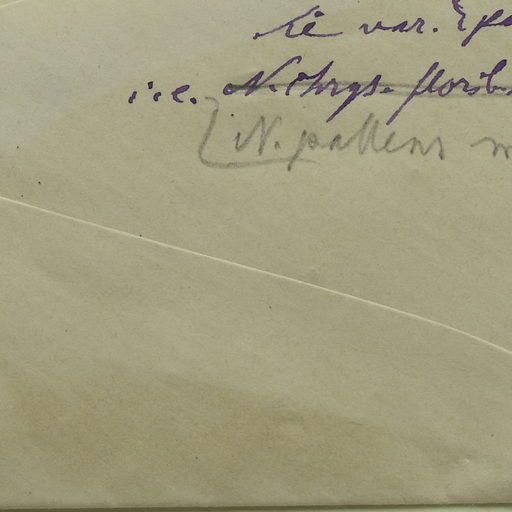 var.
i.e. N. Chrys. florib
[N. pallens